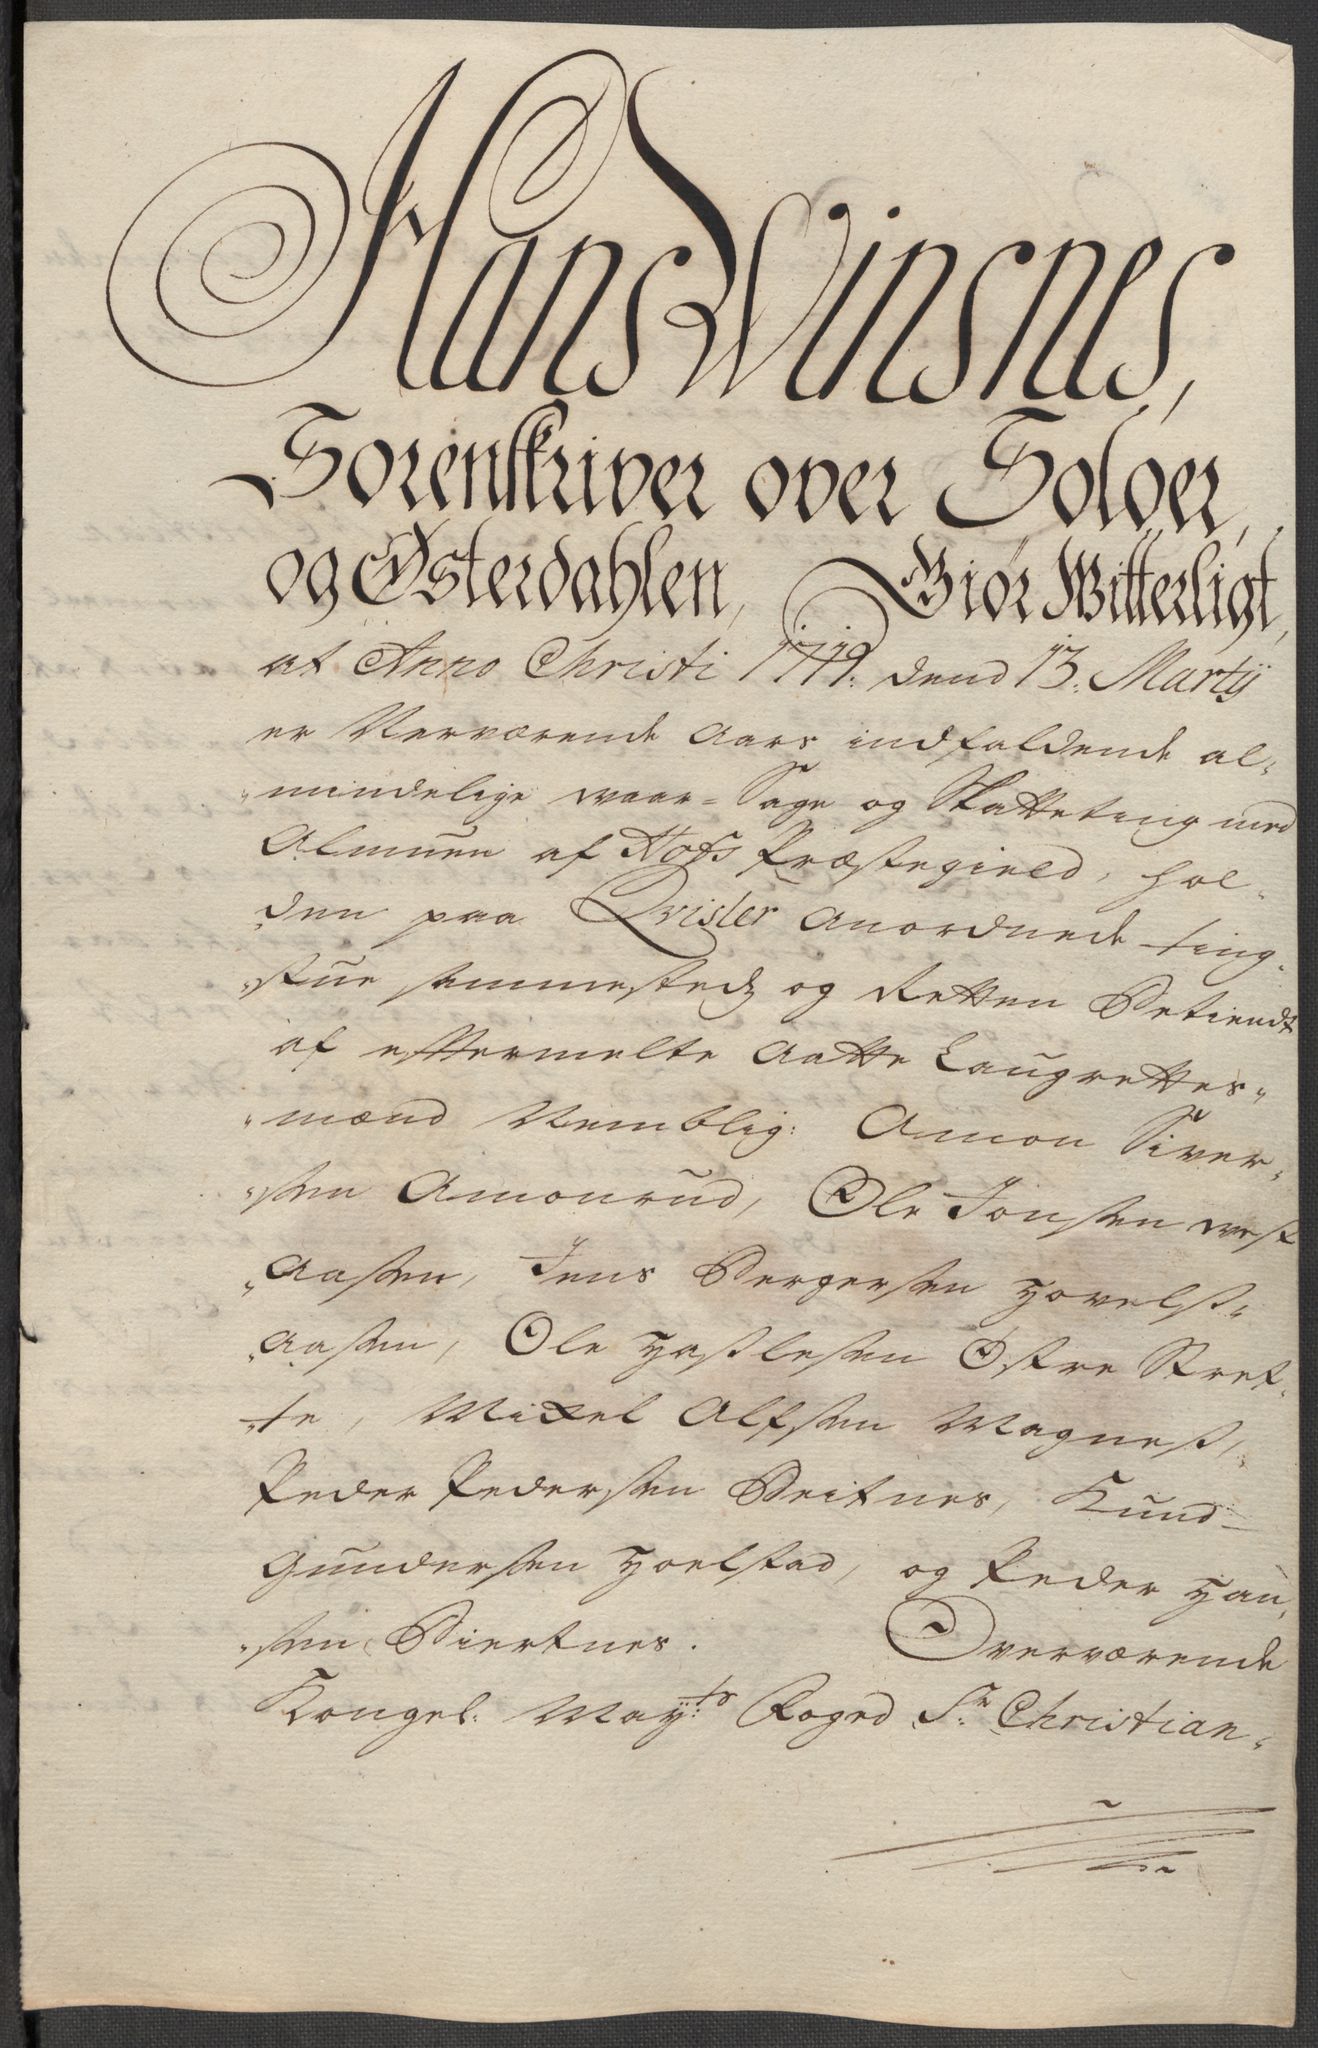 Hans Winsnes,
Sorenskriver over Soløer,
og Østerdahlen, Giør Witterligt,
at Anno Christi 1719. dend 13. Martij
er Nerværende Aars indfaldende al-
mindelige waar-Sage og Skatteting med
Almuen af Hofs Præstegield, hol-
den paa Qvisler Anordnede ting-
stue sammestedz og Retten Betiendt
af eftermelte Aatte Laugrettes-
mænd Nemblig: Amon Siver-
sen Amonrud, Ole Jonsen West
Aasen, Jens Bergersen Hovels-
Aasen, Ole Halesen Østre
te, Mikel Alfsen Magnes,
Peder Pedersen Beitnes, Knud
Gundersen Hoelstad, og Peder Han-
sen Biertnes. Overværende
Kongel. May:ts Foged Sr. Christian-